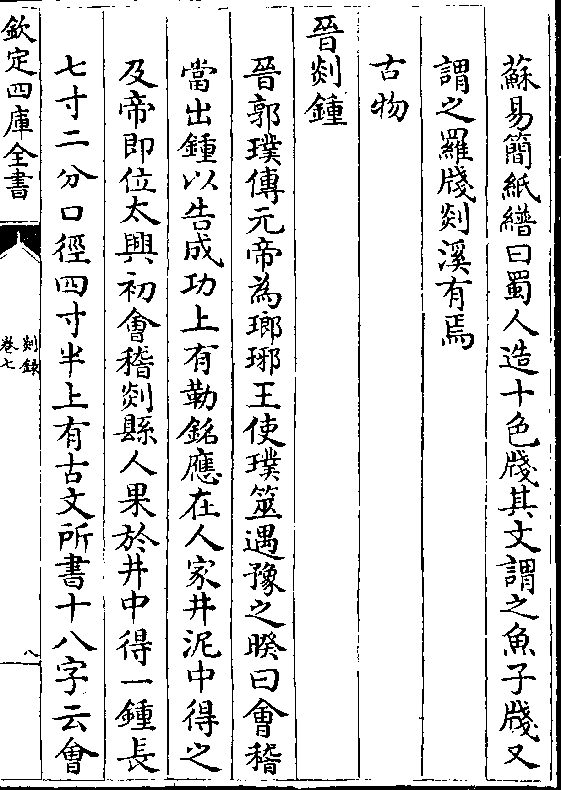 蘇易簡紙繕曰蜀人造十色牋其文謂之魚子牋又
謂之羅牋剡溪有焉
古物
晉剡鍾
晉郭璞傳元帝為瑯琊王使璞筮遇豫之睽曰會稽
當出鍾以告成功上有勒銘應在人家井泥中得之
及帝即位太興初會稽剡縣人果於井中得一鍾長
七寸二分口徑四寸半上有古文所書十八字云會
欽定四庫全書
剡錄
卷七
八